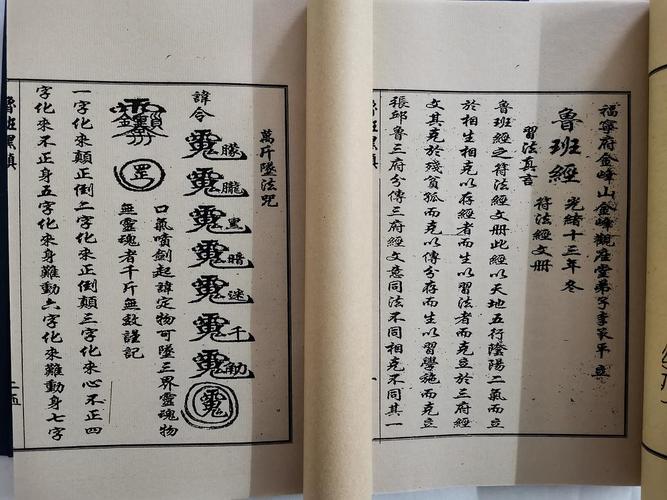 福寧府金峰山金峰觀座堂弟子李家平立
魯班經 光緒十三年冬
符法經文册
習法真言
魯班經之符法經文册此經以天地五行陰陽二氣而立
於相生相克以存經者而生以習法者而克立於三府經
文其克於殘貧孤而克以傳分存而生以習學施而克立
張邱魯三府分傳三府經文意同法不同相克不同其一
萬斤墜法咒
朦朧黑暗迷千
諱令
口氣噴劍起諱定物可墜三界靈魂物
無靈魂者千斤無效謹記
罡
一字化來顛正倒二字化來正倒顛三字化來心不正四
字化來不正身五字化來身難動六字化來難動身七字
魯班
二五